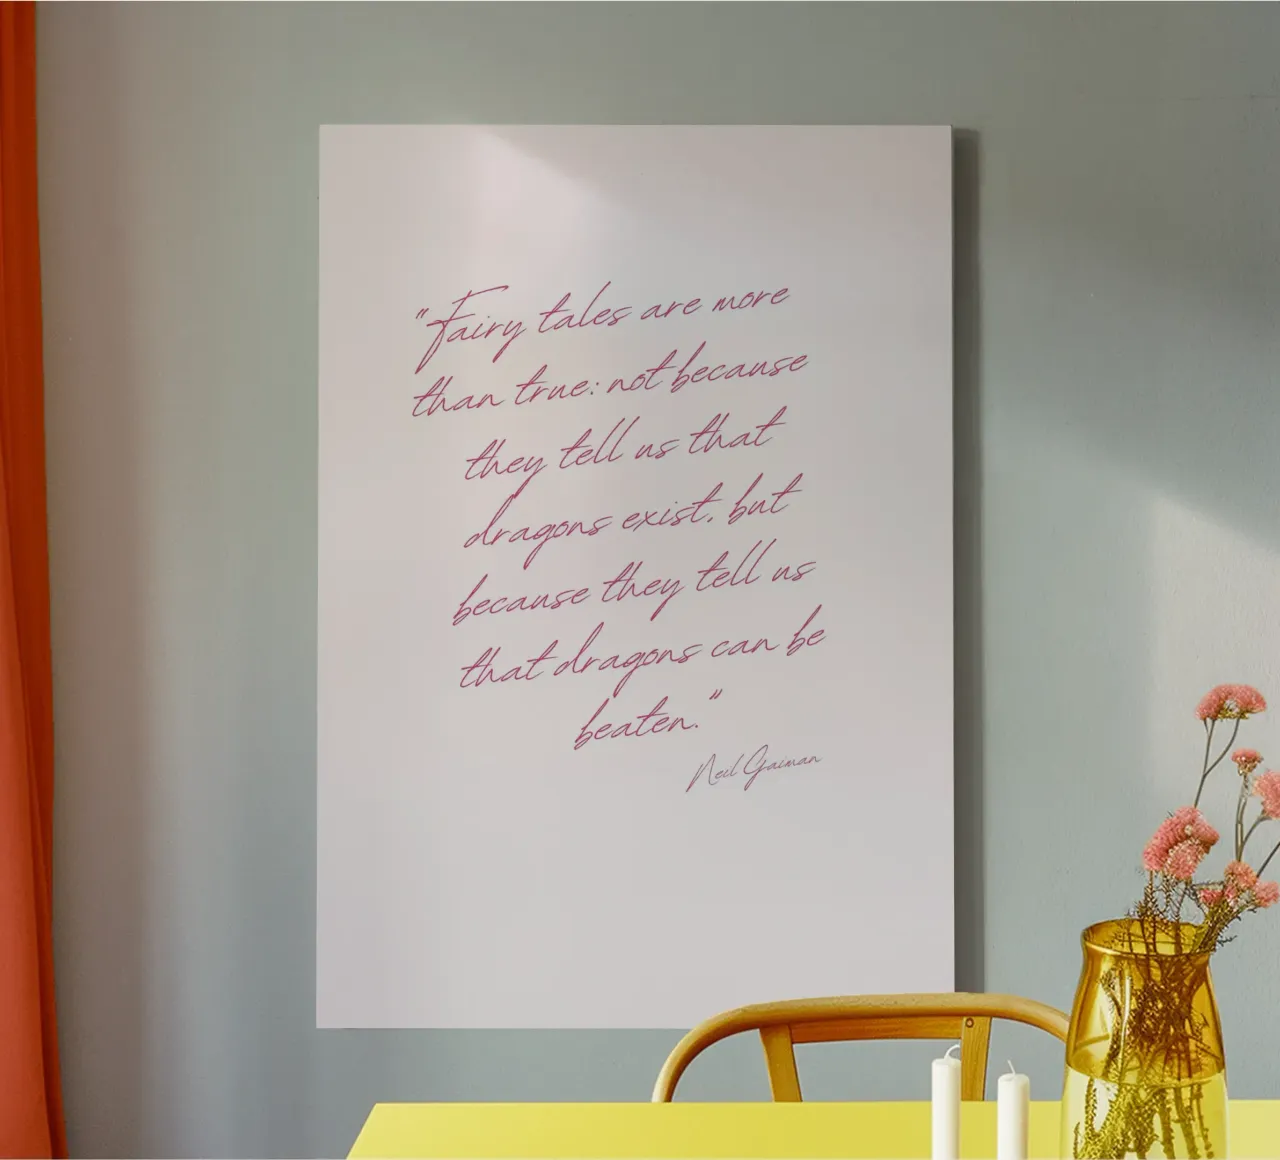 "Fairy tales are more
than true: not because
they tell us that
dragons exist, but
because they tell us
that dragons can be
beaten."
Neil Gaiman